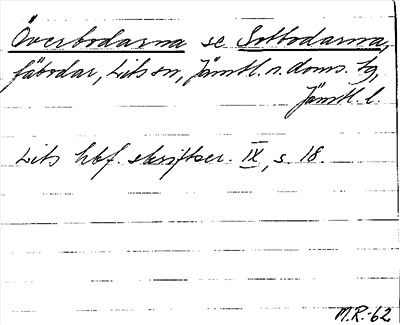 Överbodarna se Solbodarna,
fäbodar, Lits sn, Jämtl. n. doms. tg,
Jämtl. l.
Lits hbf. skriftser. IX, s. 18.
M.R.-62